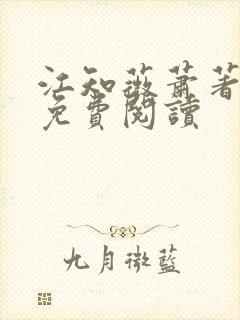 江知薇蕭著
免費閱讀
九月微藍